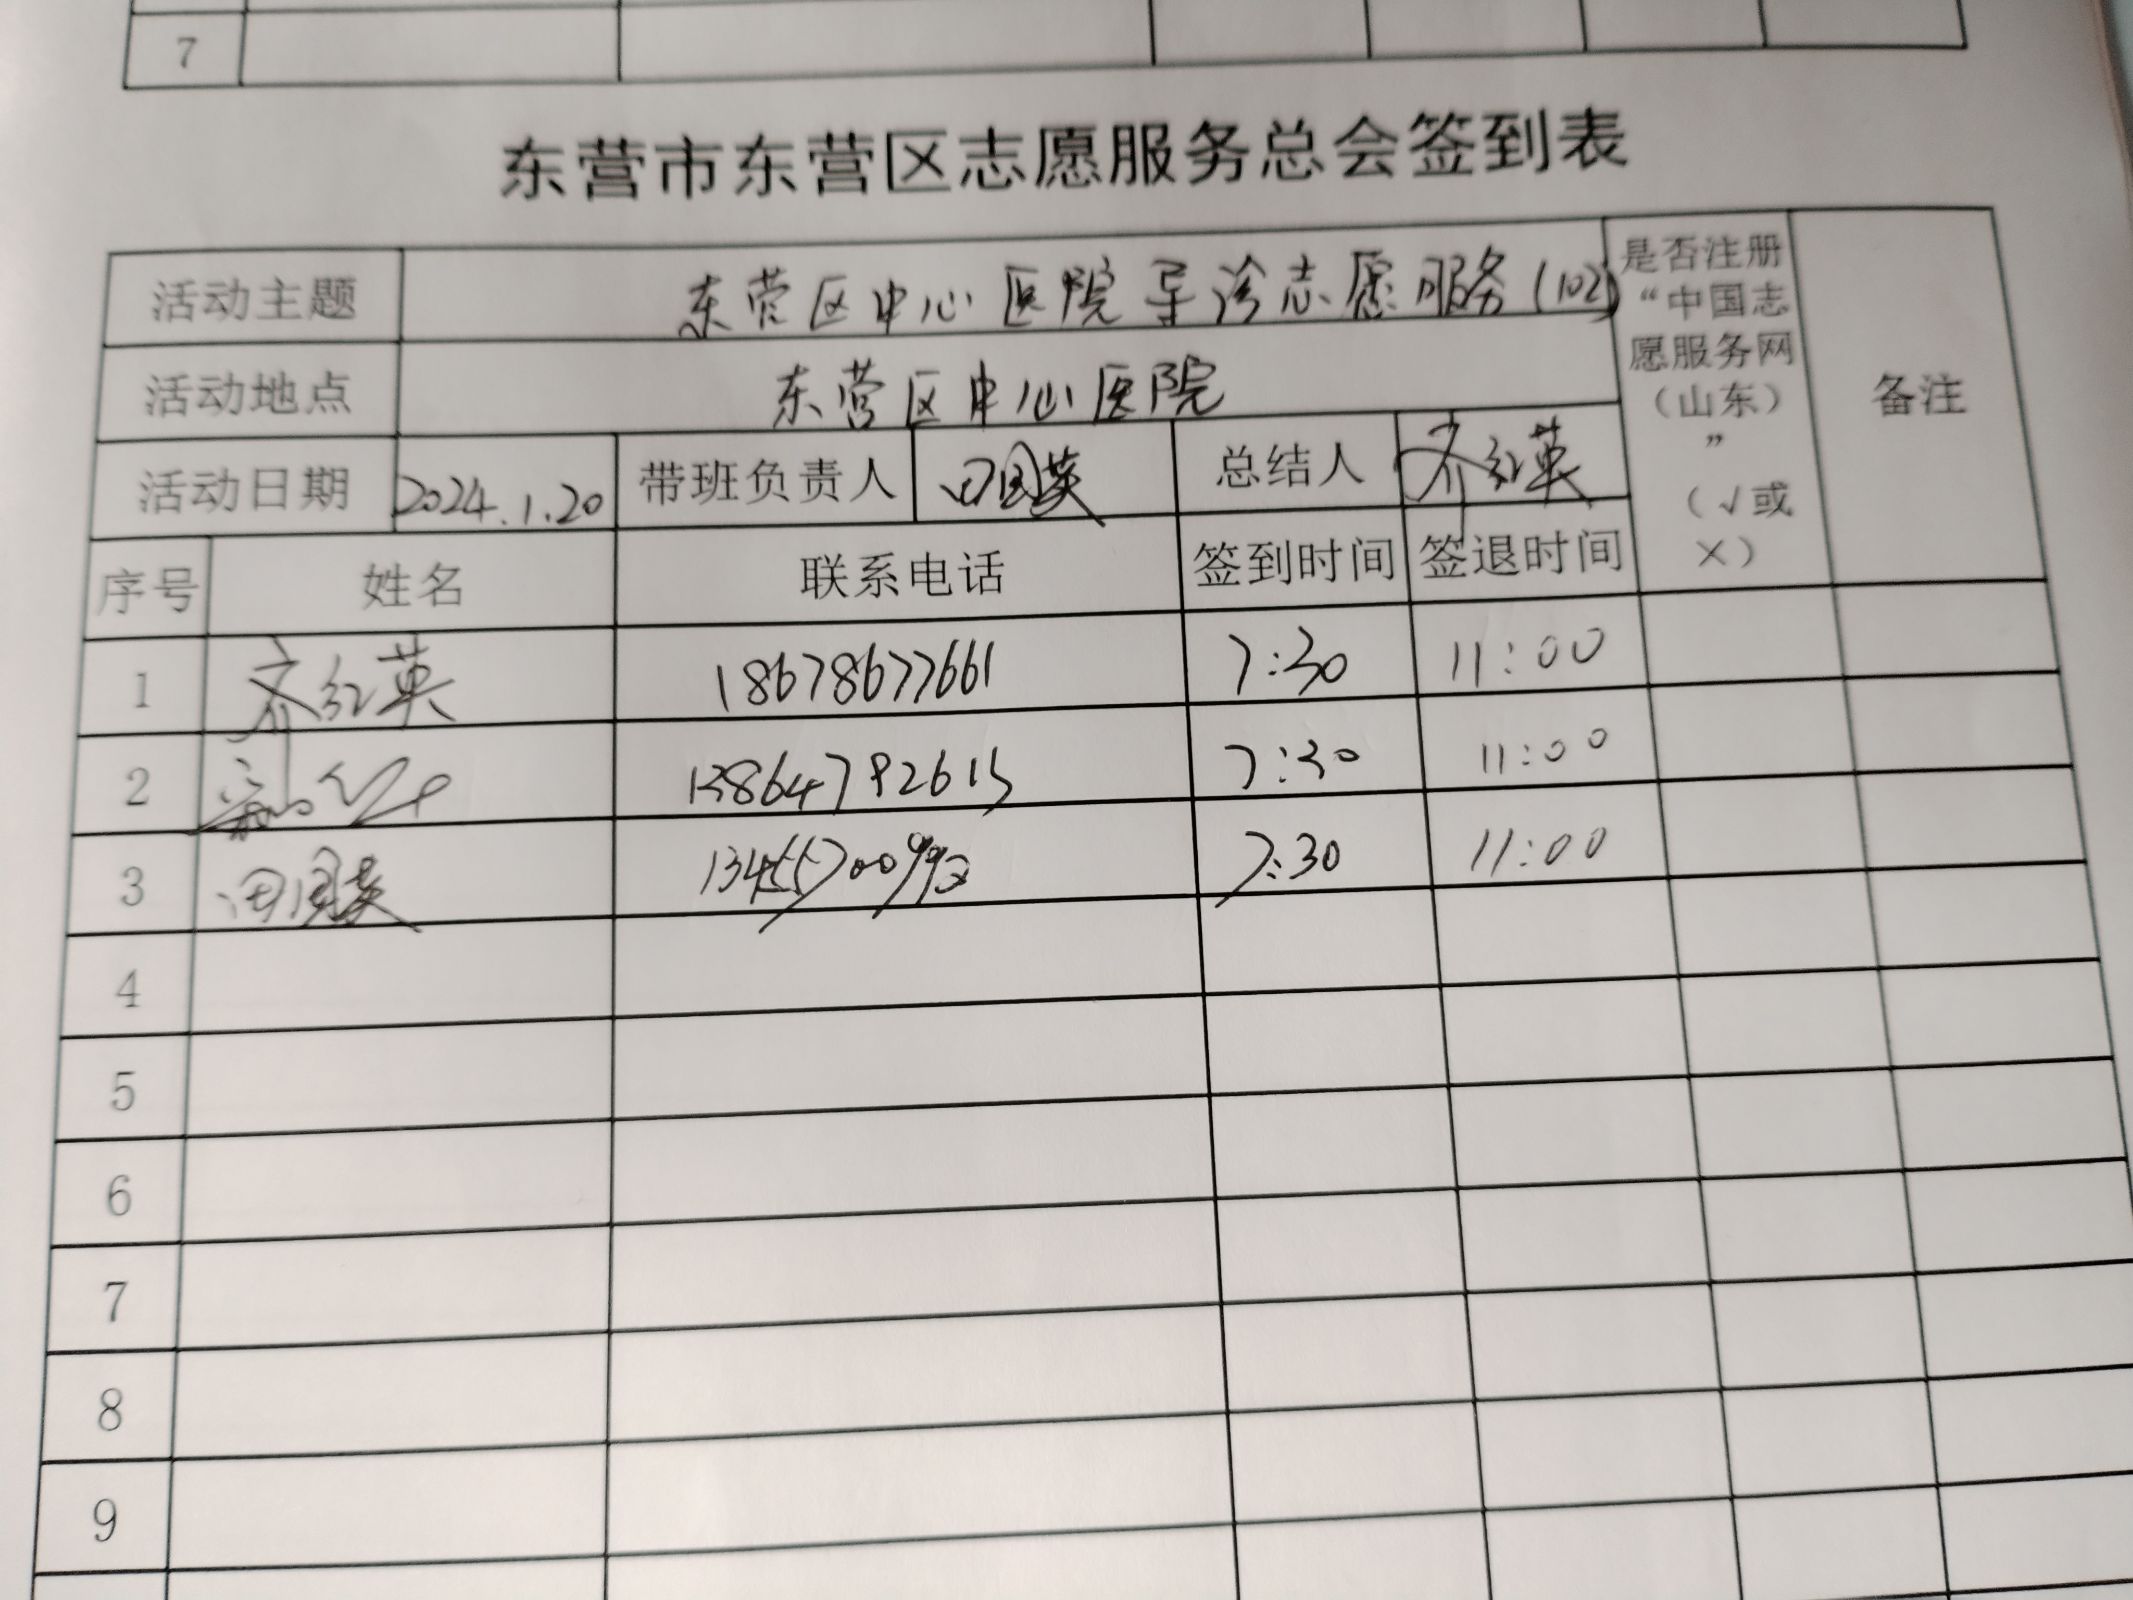 7
东营市东营区志愿服务总会签到表
活动主题 东营区中心医院导诊志愿服务(102) 是否注册“中国志愿服务网（山东）”（√或×） 备注
活动地点 东营区中心医院
活动日期 2024.1.20 带班负责人 田国英 总结人 齐红英
序号 姓名 联系电话 签到时间 签退时间
1 齐红英 18678677661 7:30 11:00
2 13864792615 7:30 11:00
3 田国英 13455700992 7:30 11:00
4
5
6
7
8
9